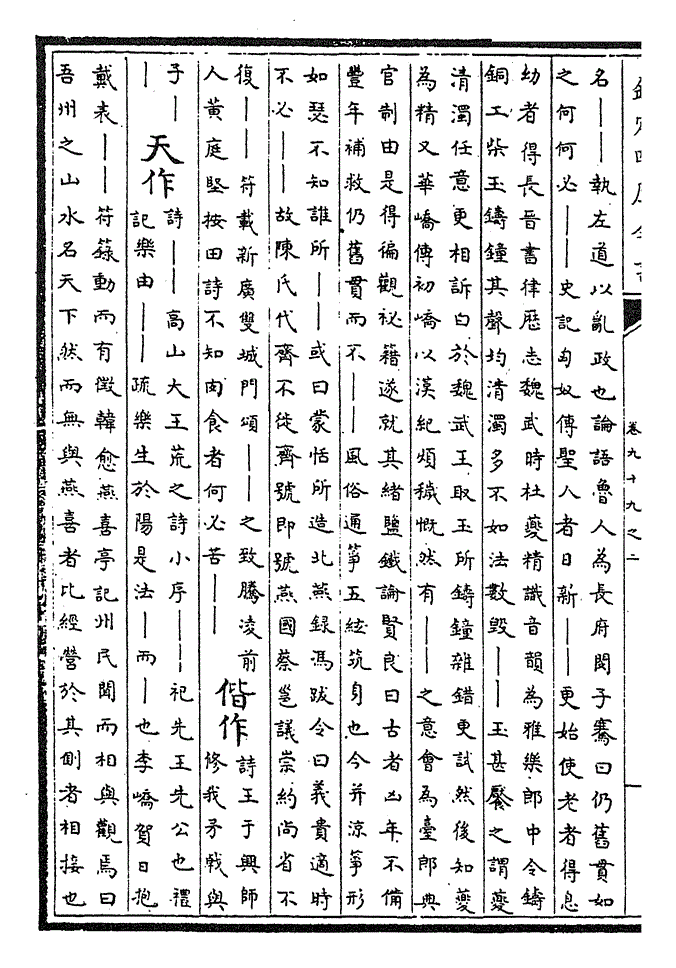 欽定四庫全書
卷九十九之二
名――執左道以亂政也論語魯人為長府閔子騫曰仍舊貫如
之何何必――史記匈奴傳聖人者日新――更始使老者得息
幼者得長晉書律歷志魏武時杜夔精識音韻為雅樂郎中令鑄
銅工柴玉鑄鐘其聲均清濁多不如法數毀――玉甚厭之謂夔
清濁任意更相訴白於魏武王取玉所鑄鐘雜錯更試然後知夔
為精又華嶠傳初嶠以漢紀煩穢慨然有――之意會為臺郎典
官制由是得徧觀祕籍遂就其緒鹽鐵論賢良曰古者凶年不備
豐年補救仍舊貫而不――風俗通箏五絃筑身也今并涼箏形
如瑟不知誰所――或曰蒙恬所造北燕錄馮跋令曰義貴適時
不必――故陳氏代齊不徙齊號即號燕國蔡邕議崇約尚省不
復――符載新廣雙城門頌――之致騰凌前
人黃庭堅按田詩不知肉食者何必苦――
偕作
詩王于興師
修我矛戟與
子―
―
天作
詩――高山大王荒之詩小序――祀先王先公也禮
記樂由――疏樂生於陽是法―而―也李嶠賀日抱
戴表――符籙動而有徵韓愈燕喜亭記州民聞而相與觀焉曰
吾州之山水名天下然而無與燕喜者比經營於其側者相接也